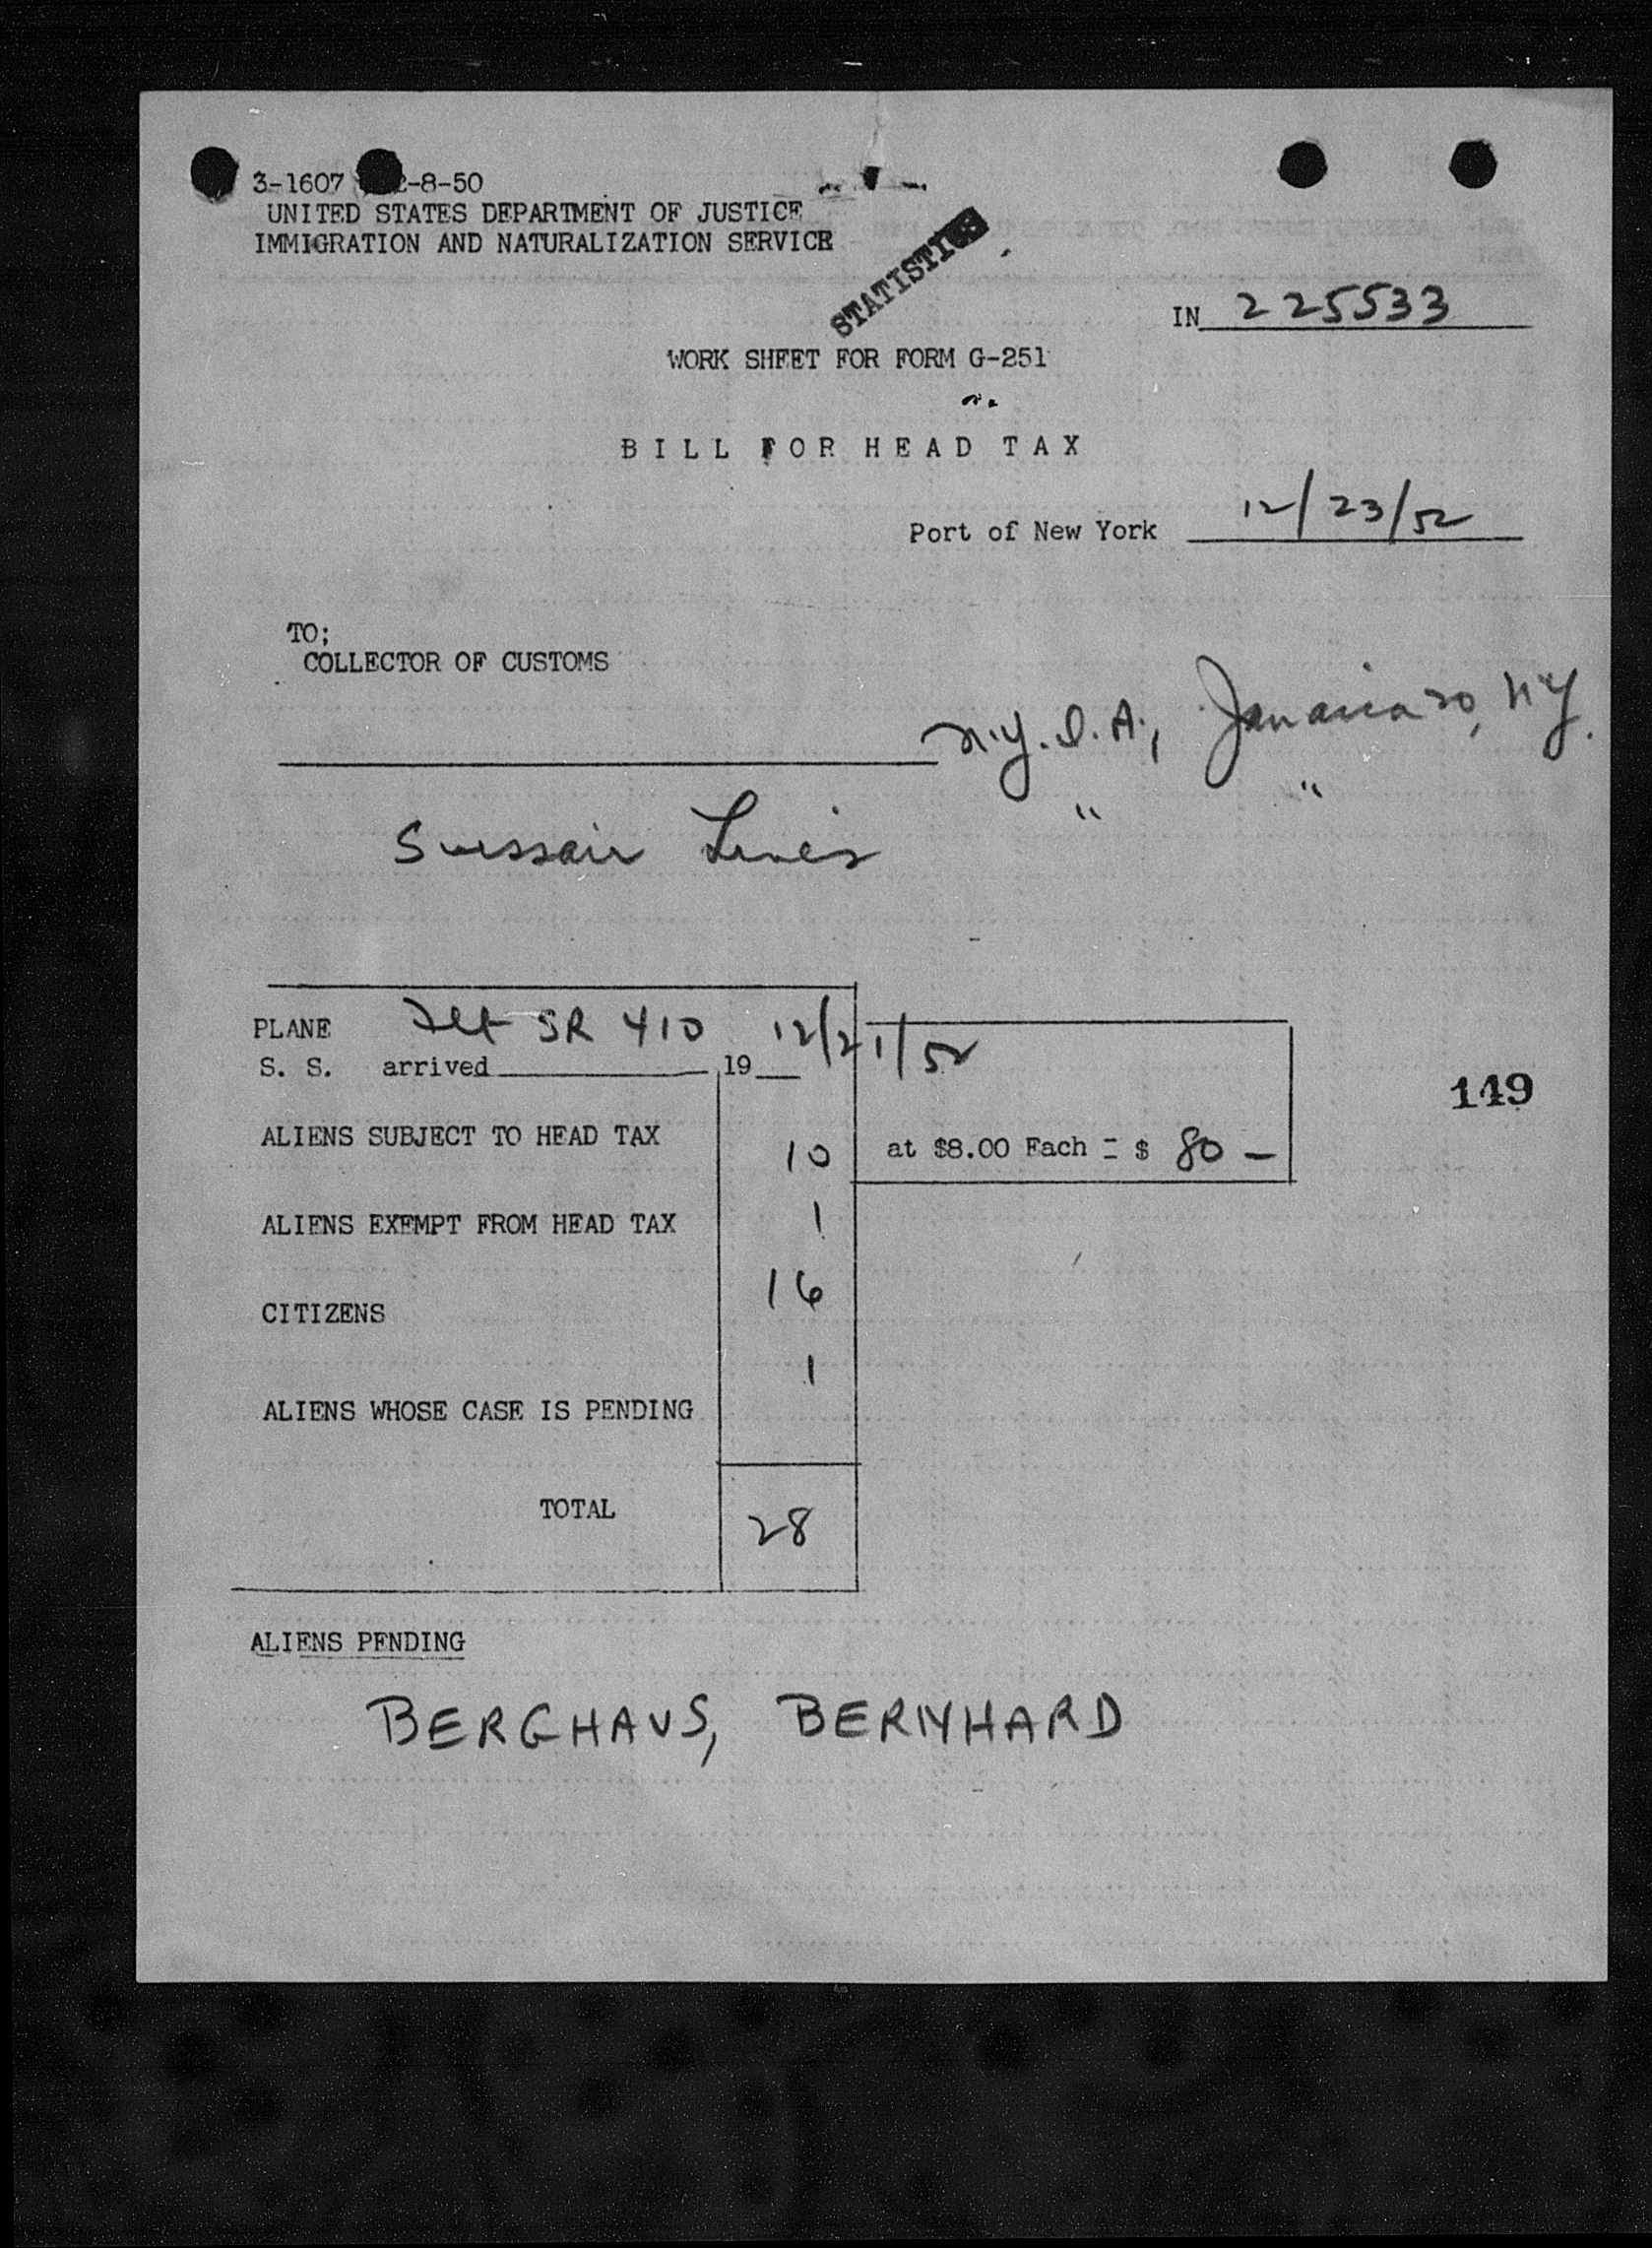 3-1607 2-8-50
UNITED STATES DEPARTMENT OF JUSTICE
IMMIGRATION AND NATURALIZATION SERVICE
STATISTICS
IN 225533
WORK SHEET FOR FORM G-251
BILL FOR HEAD TAX
Port of New York 12/23/52
TO;
COLLECTOR OF CUSTOMS
N.Y.I.A., Jamaica 30, NY.
Swissair Lines " "
PLANE Flt SR 410 12/21/52
S. S. arrived 19
149
ALIENS SUBJECT TO HEAD TAX 10 at $8.00 Each = $ 80 —
ALIENS EXEMPT FROM HEAD TAX 1
CITIZENS 16
ALIENS WHOSE CASE IS PENDING 1
TOTAL 28
ALIENS PENDING
BERGHAUS, BERNHARD